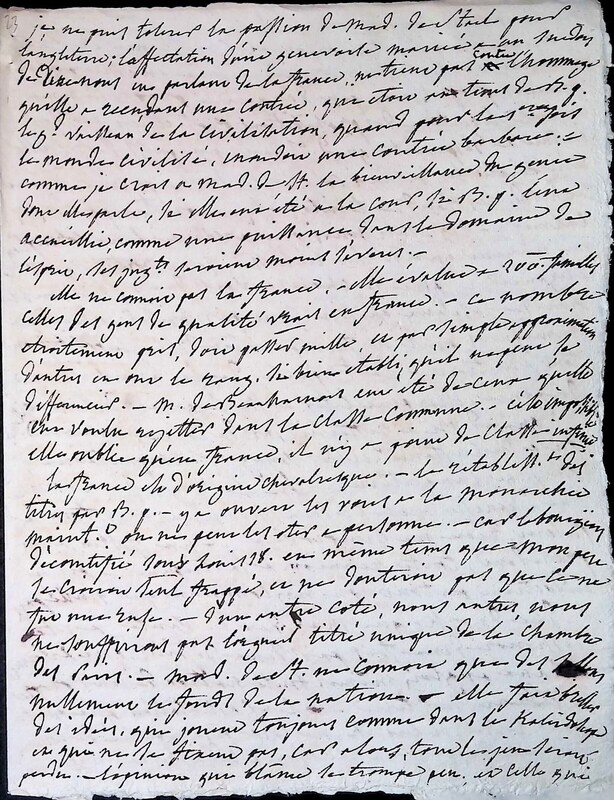 23
je ne puis tolerer la passion de mad. de Stael pour
l'angleterre; l'affectation d'une genevoise mariée a un suedois
de dire nous en parlant de la france, ne tient pas contre l'hommage
qu'elle a rendu a une contrée, qui etoit au tems de B. q.
le gd vaisseau de la civilisation, quand pour la 1ere fois
le monde civilisé, inondoit une contrée barbare. —
comme je crois a mad. de St. la bienveillance du genie
dont elle parle, si elle eut été a la cour, si B. q. l'eut
accueillie, comme une puissance, dans le domaine de
l'esprit, ses jugts seroient moins severes. —
elle ne connoit pas la france. — elle évalue a 200 familles
celles des gens de qualité vrais en france. — ce nombre
etroitement pris, doit passer mille, et par simple approximation
d'autres en ont le rang si bien etabli, qu'il ne peut se
differencier. — M. de Beauharnois eut été de ceux qu'elle
eut voulu rejetter dans la classe commune. —
elle oublie qu'en france, il n'y a point de classe
la france est d'origine chevaleresque. — le rétablisst des
titres par B. q. — y a ouvert les voies a la monarchie
maintt on ne peut les oter a personne. — car le bourgeois
decomtifié sous Louis 18. en même tems que mon pere
se croiroit seul frappé, et ne douteroit pas que ce ne
fut une ruse. — d'un autre coté, nous autres nous
ne souffririons pas l'orgueil titré unique de la chambre
des pairs. — mad. de St. ne connoit que des
nullement le fonds de la nation. — elle fait briller
des idées, qui jouent toujours comme dans le Kaleidoscope
et qui ne se fixent pas, car alors, tout le jeu seroit
perdu. — l'opinion qui blâme se trompe peu. et celle qui